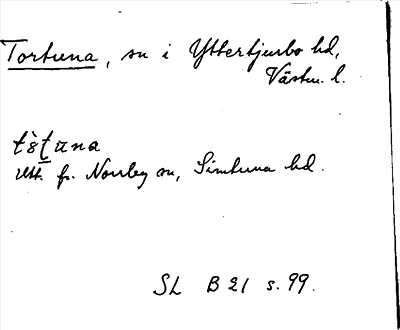 Tortuna, sn i Yttertjurbo hd,
Västm. l.
tʹs̀ṯūna
utt. fr. Norrby sn, Simtuna hd.
SL B 21 s. 99.